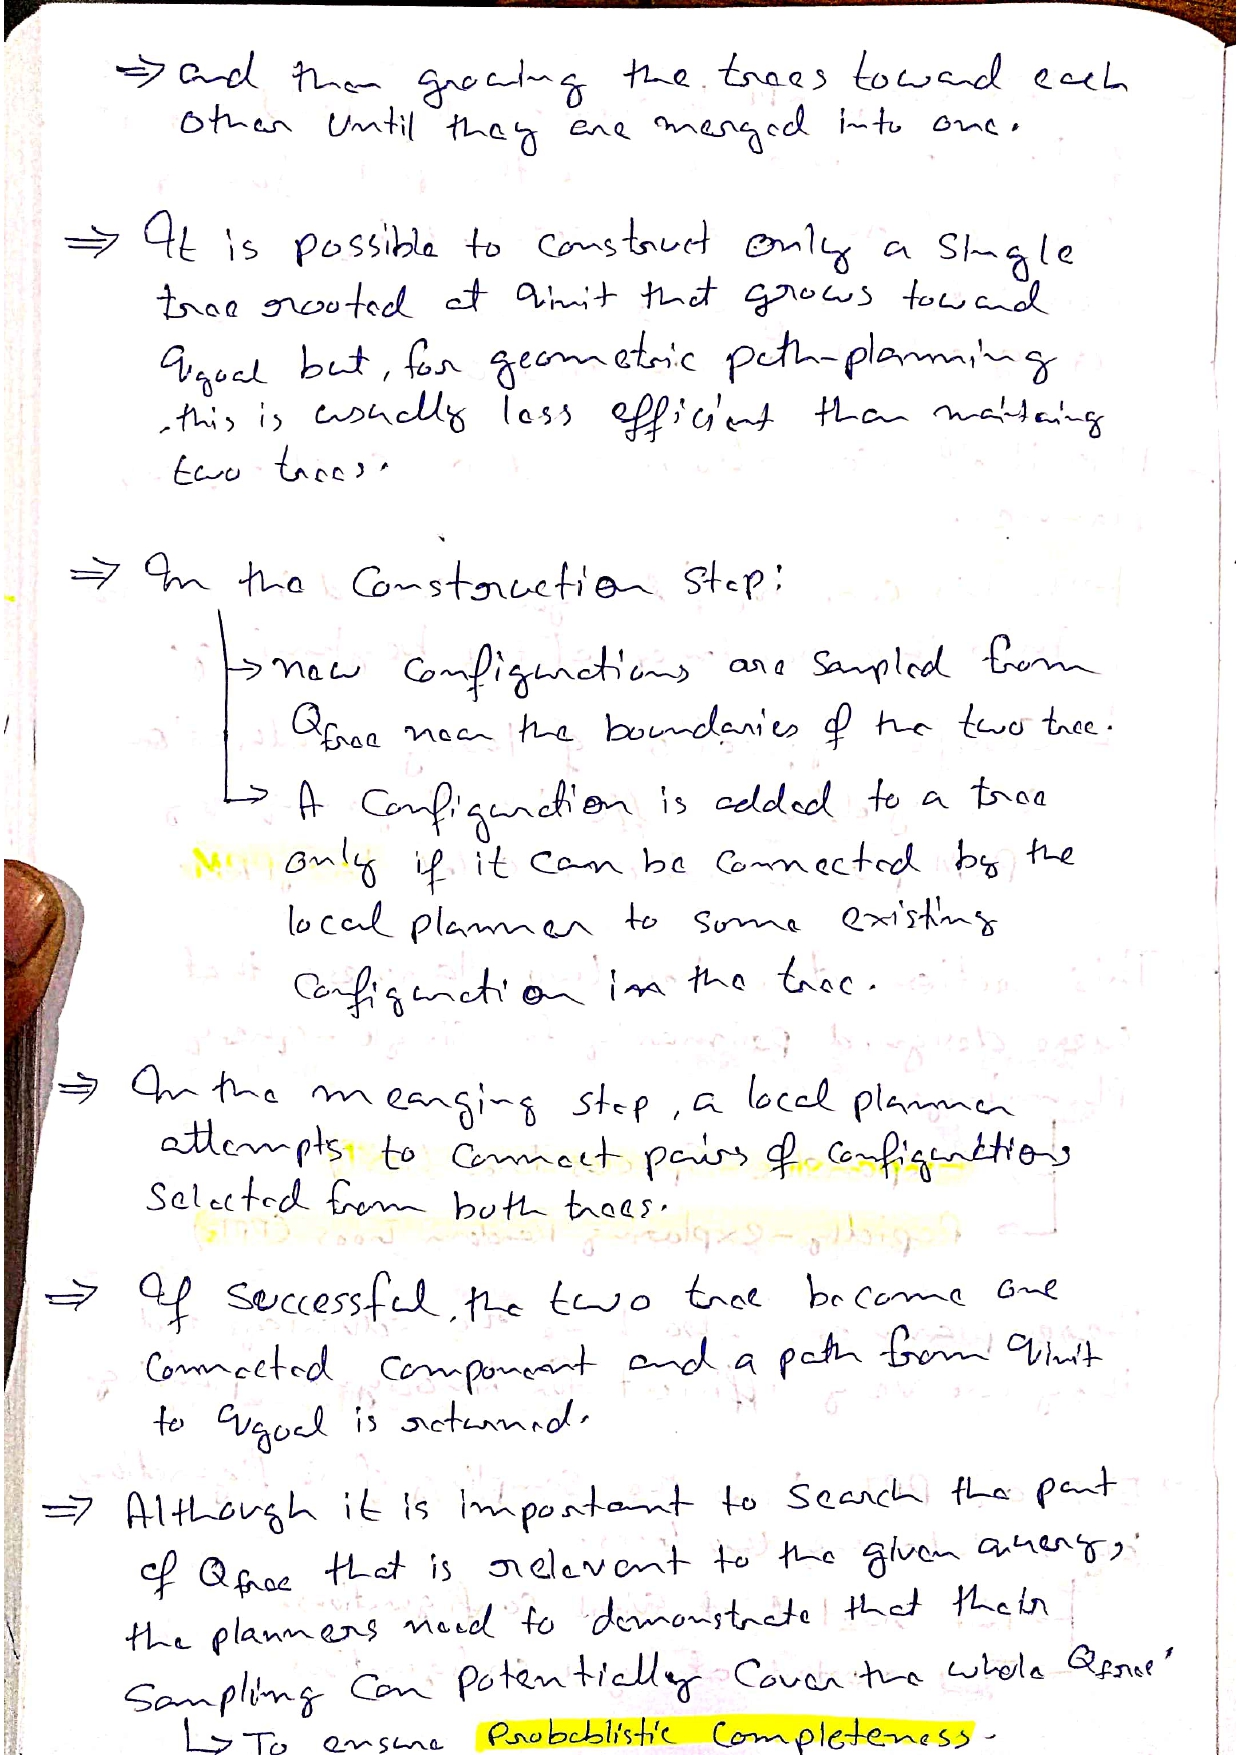 ⇒ and then growing the trees toward each
other Until they are merged into one.
⇒ It is possible to construct only a single
tree rooted at qinit that grows toward
qgoal but, for geometric path-planning
, this is usually less efficient than maintaing
two trees.
⇒ In the Construction step:
↳ new configurations are sampled from
Qfree near the boundaries of the two tree.
↳ A Configuration is added to a tree
only if it can be connected by the
local planner to some existing
Configuration in the tree.
⇒ In the mearging step, a local planner
attempts to connect pairs of configurations
Selected from both trees.
⇒ If Successful, the two tree become one
Connected component and a path from qinit
to qgoal is returned.
⇒ Although it is important to search the part
of Qfree that is relevant to the given query,
the planners need to demonstrate that their
Sampling Can Potentially Cover the whole Qfree.
↳ To ensure Probablistic Completeness.